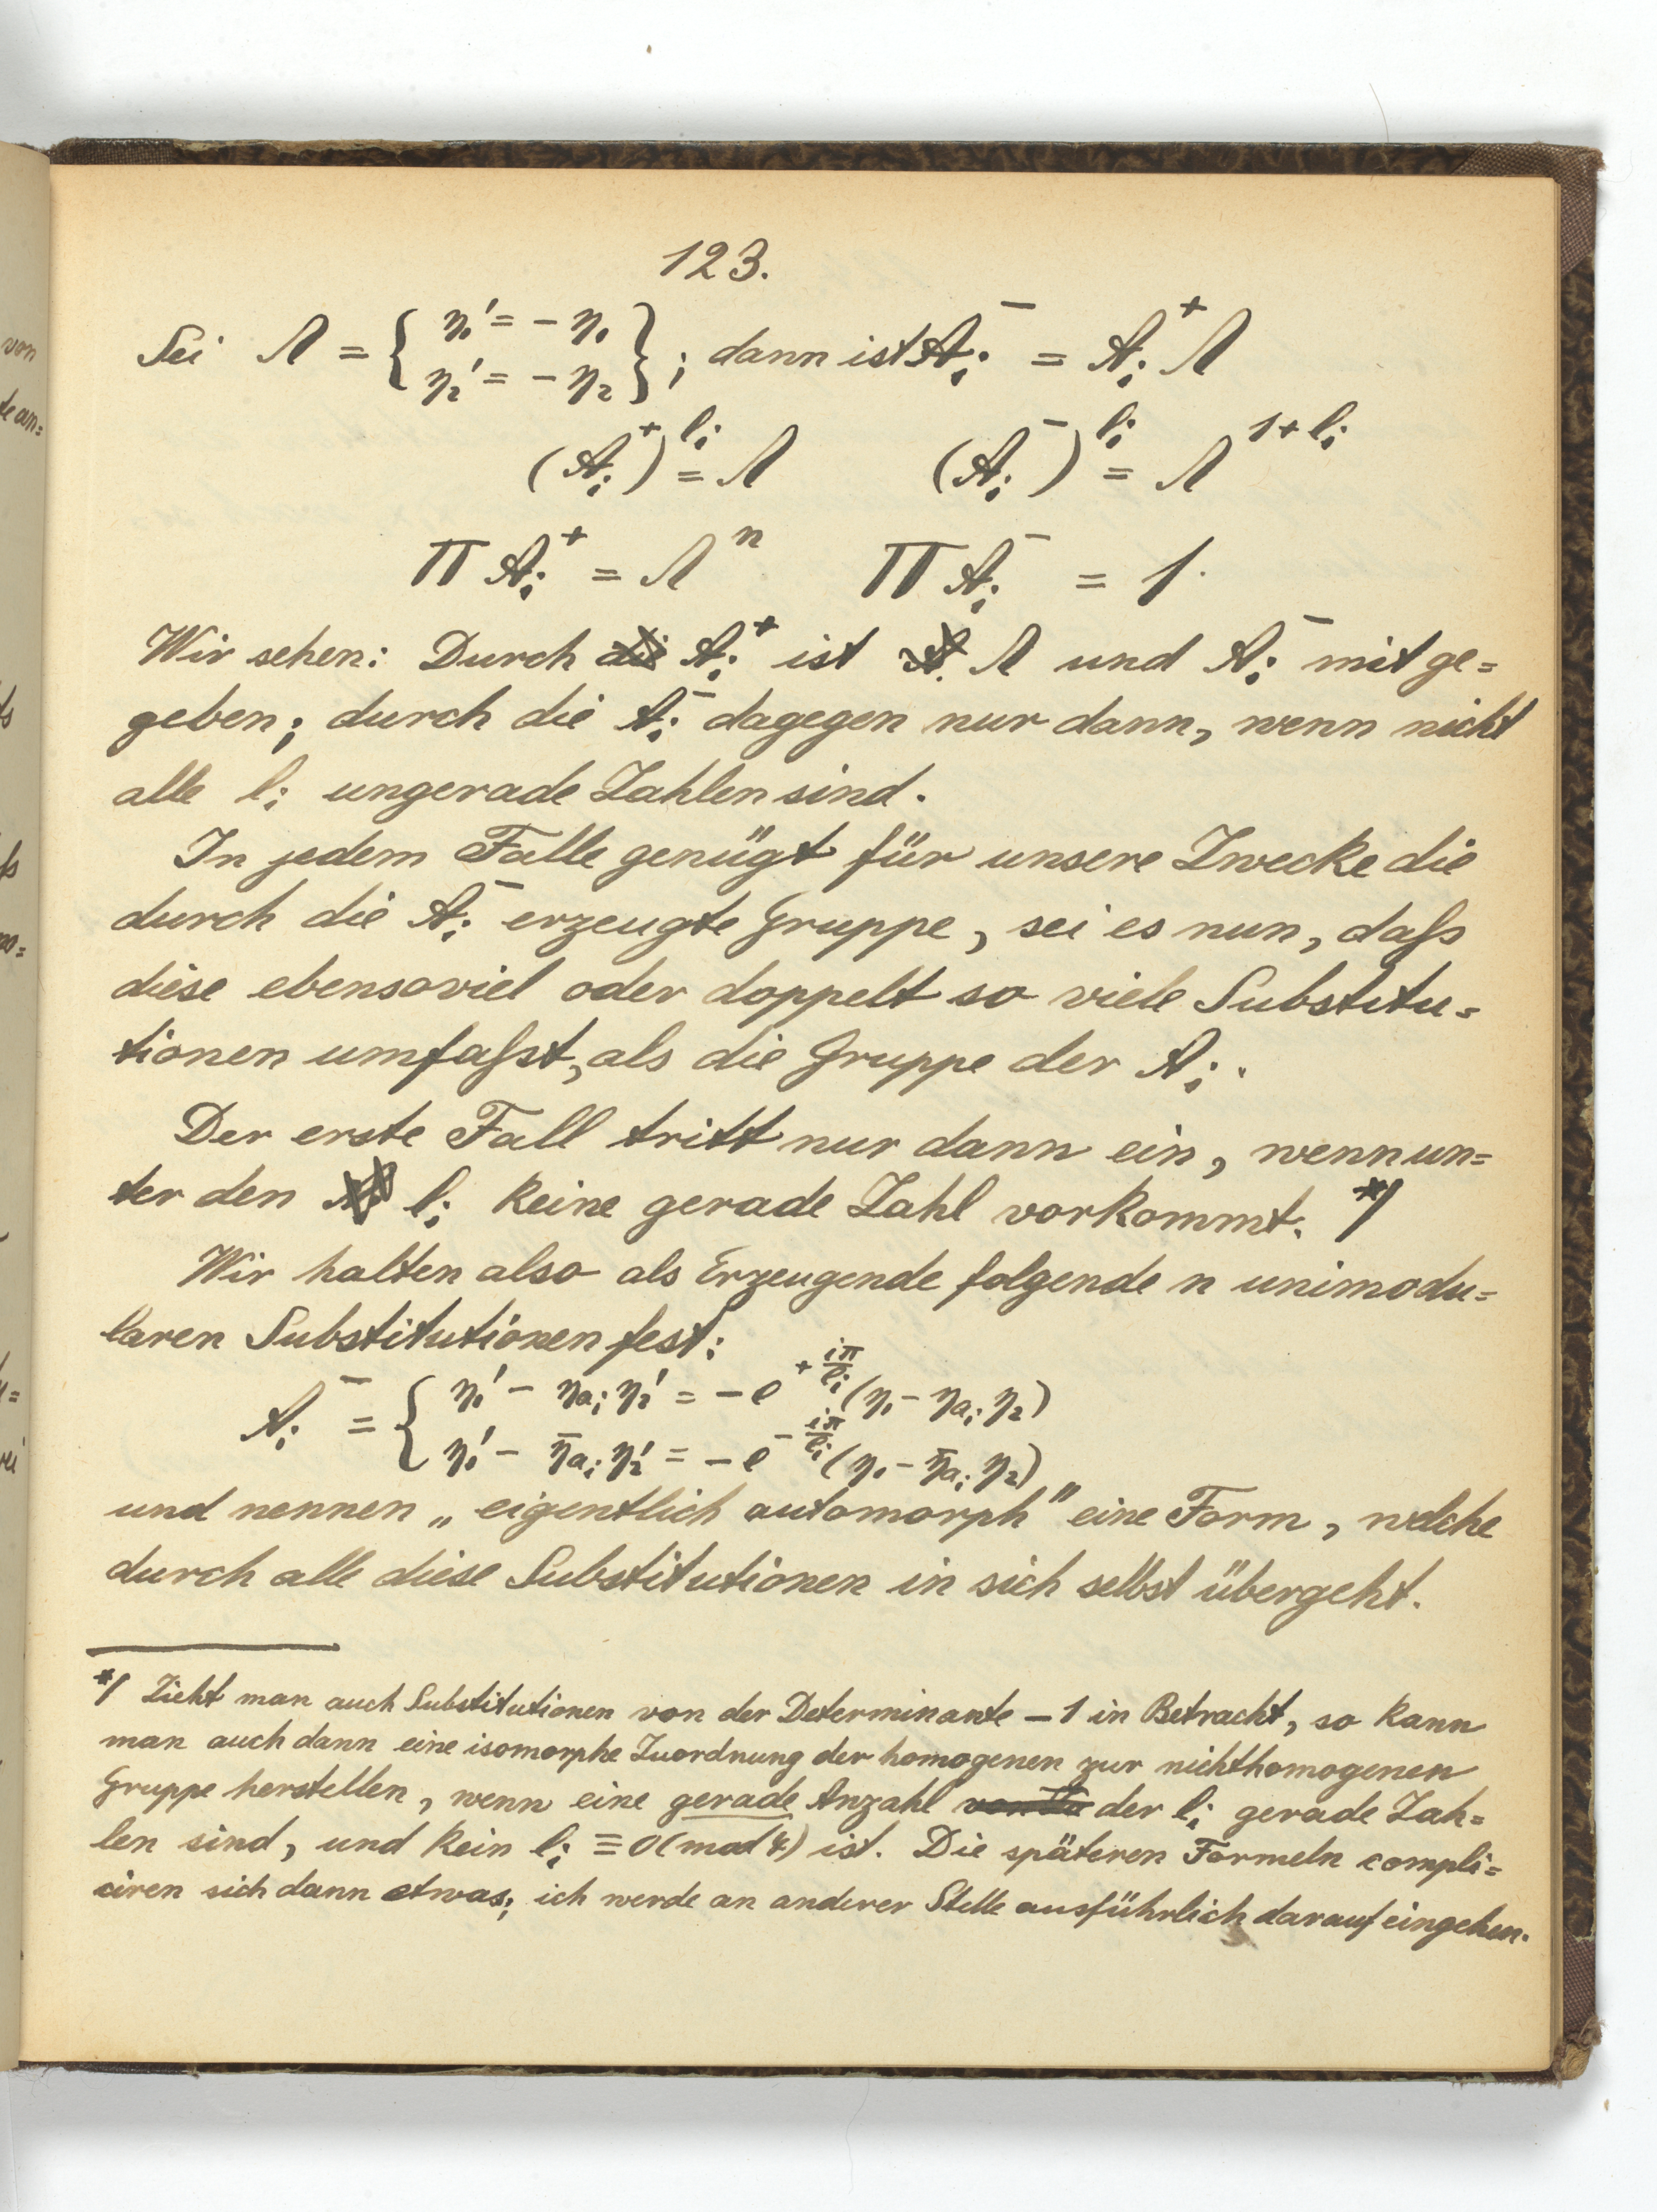 123.
Sei Λ = { η₁' = − η₁
η₂' = − η₂ } ; dann ist A_i^- = A_i^+ Λ
(A_i^+)^{l_i} = Λ (A_i^-)^{l_i} = Λ^{1+l_i}
Π A_i^+ = Λ^n Π A_i^- = 1.
Wir sehen: Durch die A_i^+ ist Λ und A_i^- mit ge=
geben; durch die A_i^- dagegen nur dann, wenn nicht
alle l_i ungerade Zahlen sind.
In jedem Falle genügt für unsere Zwecke die
durch die A_i^- erzeugte Gruppe, sei es nun, daſs
diese ebensoviel oder doppelt so viele Substitu=
tionen umfaſst, als die Gruppe der A_i.
Der erste Fall tritt nur dann ein, wenn un=
ter den l_i keine gerade Zahl vorkommt. *)
Wir halten also als Erzeugende folgende n unimodu=
laren Substitutionen fest:
A_i^- = { η₁' − η_{a_i} η₂' = − e^{+ iπ/l_i} (η₁ − η_{a_i} η₂)
η₁' − η̄_{a_i} η₂' = − e^{− iπ/l_i} (η₁ − η̄_{a_i} η₂)
und nennen „eigentlich automorph" eine Form, welche
durch alle diese Substitutionen in sich selbst übergeht.
*) Zieht man auch Substitutionen von der Determinante −1 in Betracht, so kann
man auch dann eine isomorphe Zuordnung der homogenen zur nichthomogenen
Gruppe herstellen, wenn eine gerade Anzahl der l_i gerade Zah=
len sind, und kein l_i ≡ 0 (mod 4) ist. Die späteren Formeln compli=
ciren sich dann etwas; ich werde an anderer Stelle ausführlich darauf eingehen.